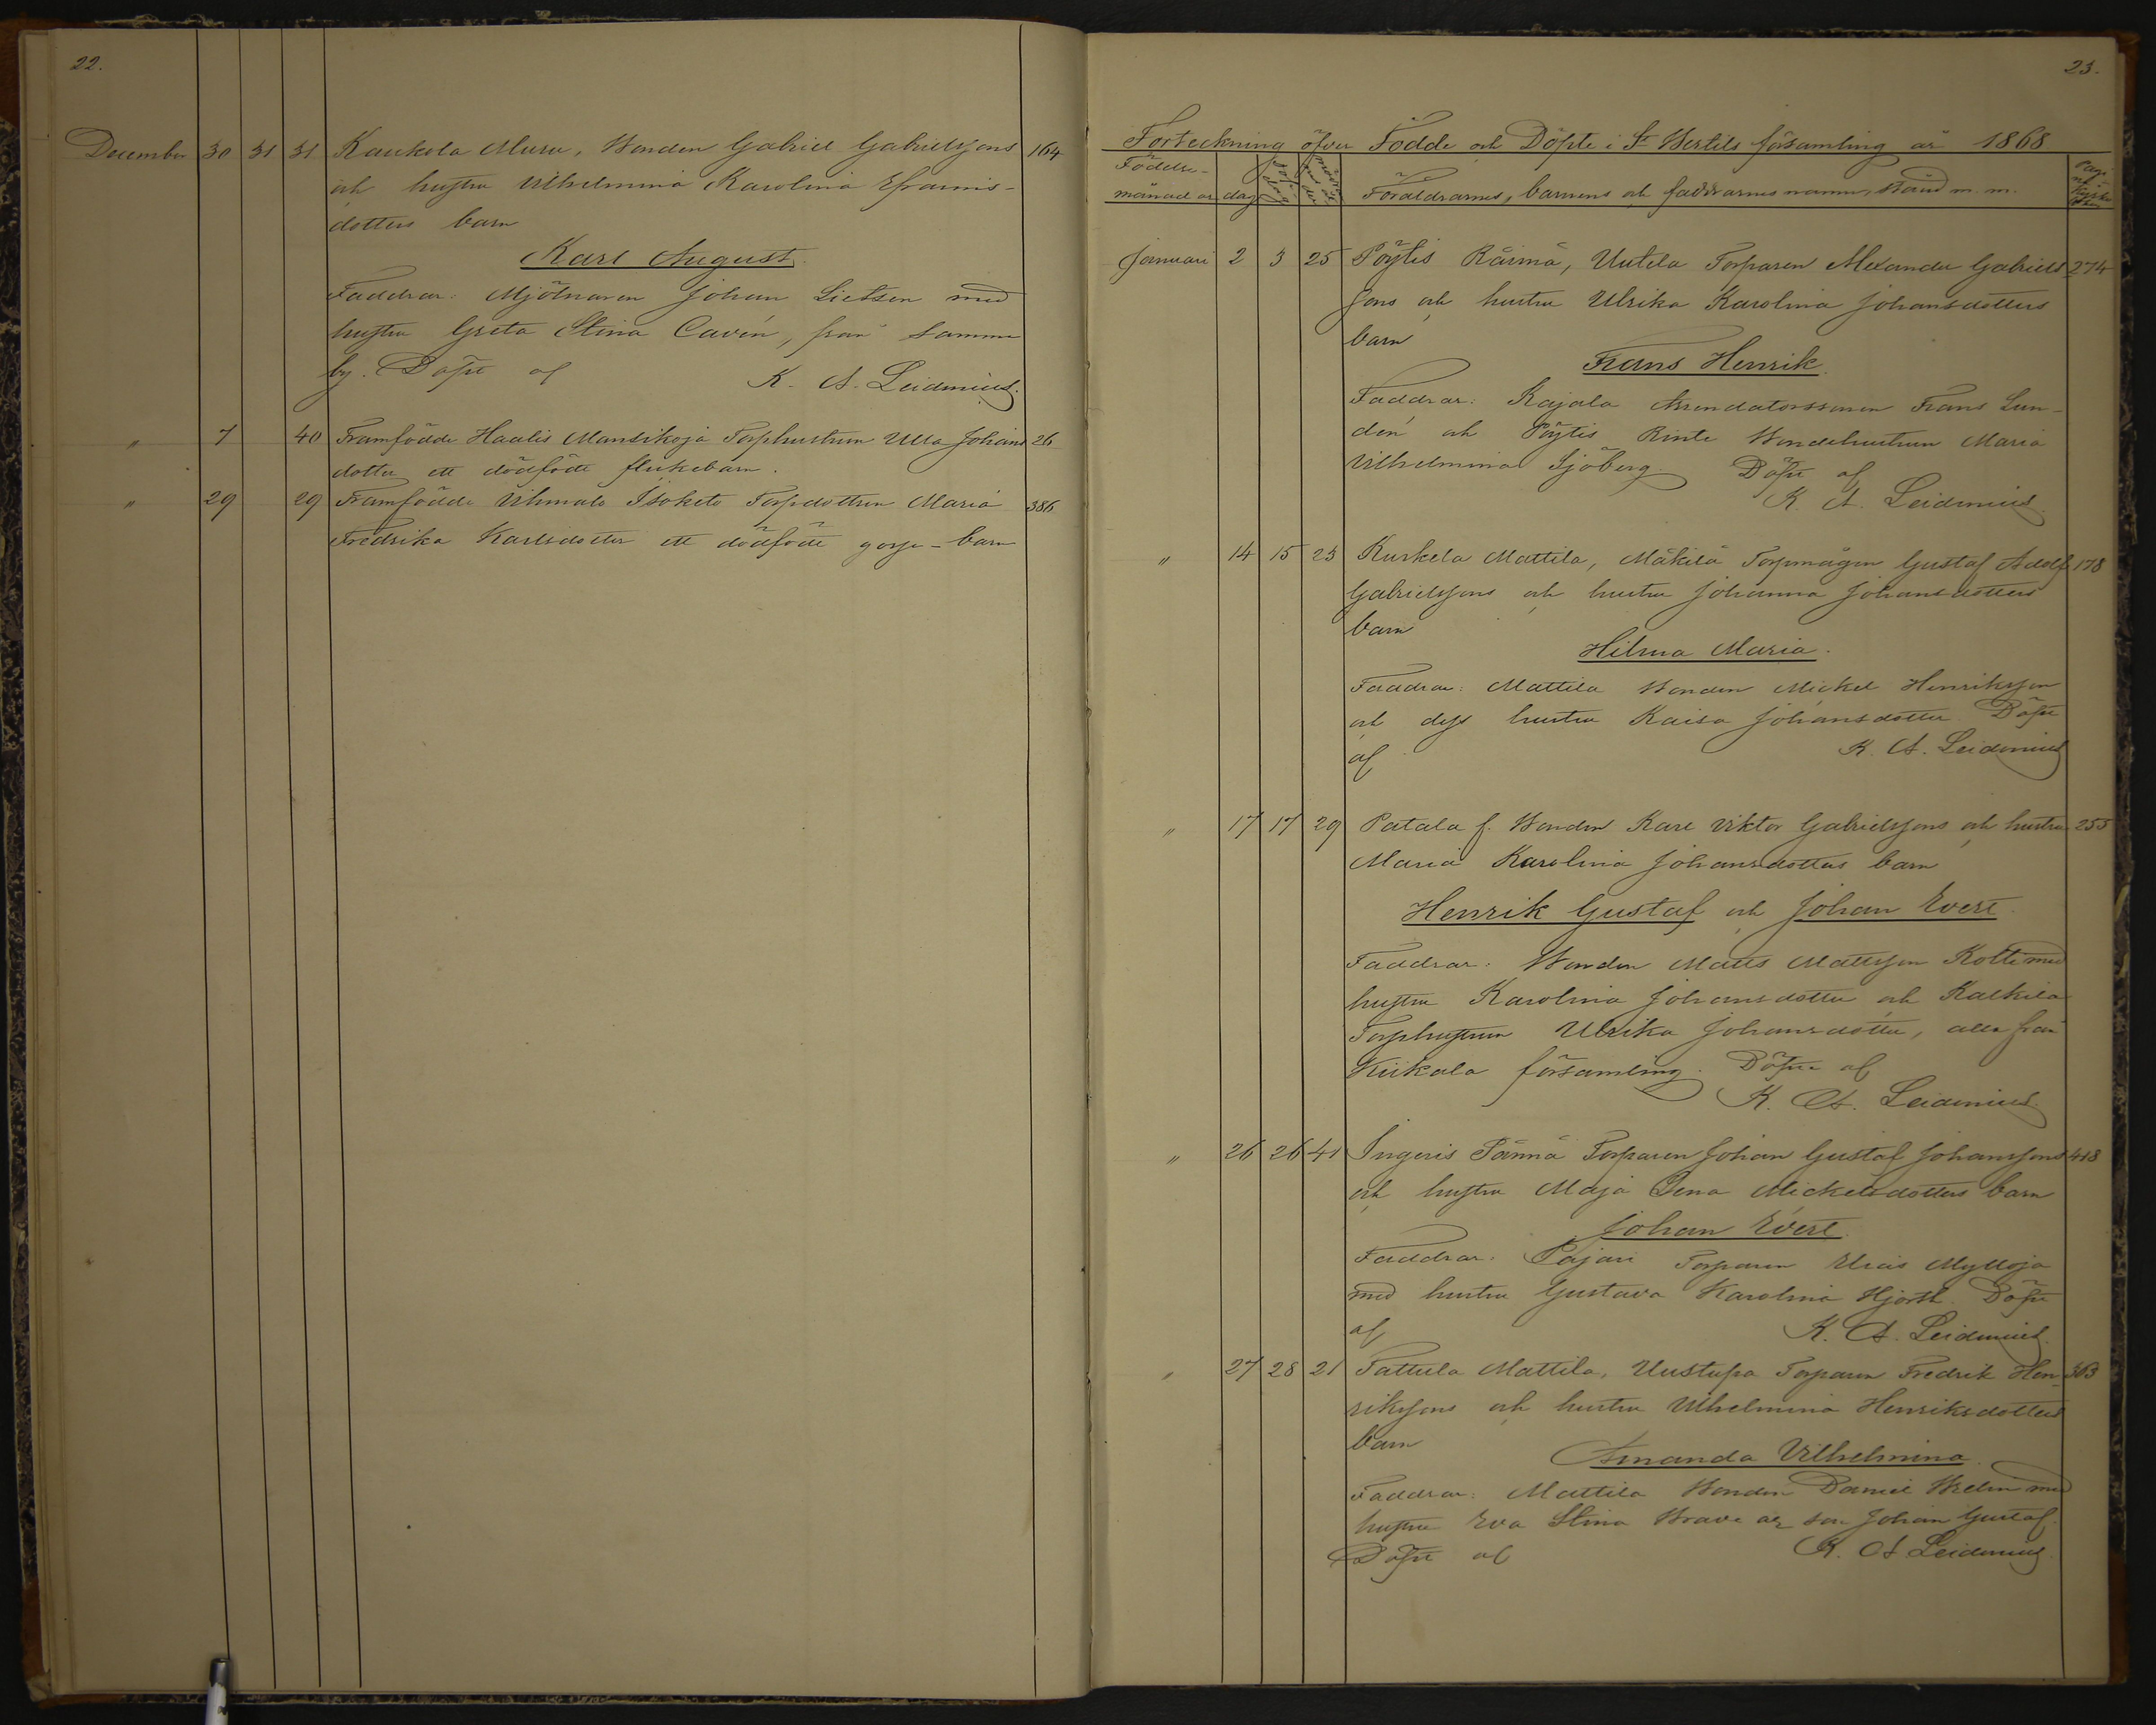 22.
December 30 31 31 Kaukola Muru, Bonden Gabriel Gabrielssons 164
och hustru Vilhelmina Karolina Efraims-
dotters barn
Karl August.
Faddrar: Mjölnaren Johan Lietzen med
hustru Greta Stina Cavén, från samma
by. Döpt af K. A. Leidenius.
" 7 40 Framfödde Haalis Mansikoja Torphustrun Ulla Johans 26
dotter ett dödfödt flickebarn.
" 29 29 Framfödde Vihmalo Isoketo Torpdottren Maria 386
Fredrika Karlsdotter ett dödfödt gosse-barn
23.
Förteckning öfver Födde och Döpte i St Bertils församling år 1868
Födelse-
månad och dag Föräldrarnes, barnens och faddrarnes namn, stånd m. m.
Januari 2 3 25 Pöytis Räimä, Uutela Torparen Alexander Gabriels 274
sons och hustru Ulrika Karolina Johansdotters
barn
Frans Henrik.
Faddrar: Kajala Arrendatorssonen Frans Lun-
dén och Pöytis Rinte Bondehustrun Maria
Vilhelmina Sjöberg. Döpt af
K. A. Leidenius.
" 14 15 23 Kurkela Mattila, Mäkilä Torpmågen Gustaf Adolf 178
Gabrielssons och hustru Johanna Johansdotters
barn
Hilma Maria.
Faddrar: Mattila Bonden Mickel Henriksson
och dess hustru Kaisa Johansdotter. Döpt
af K. A. Leidenius
" 17 17 29 Patala f. Bonden Karl Viktor Gabrielssons och hustru 255
Maria Karolina Johansdotters barn
Henrik Gustaf och Johan Evert.
Faddrar: Bonden Matts Mattsson Kolti med
hustru Karolina Johansdotter och Kalkila
Torphustrun Ulrika Johansdotter, alla från
Kiikala församling. Döpte af
K. A. Leidenius.
" 26 26 41 Ingeris Pännä Torparen Johan Gustaf Johanssons 418
och hustru Maja Lena Mickelsdotters barn
Johan Evert.
Faddrar: Pajari Torparen Elias Mylloja
med hustru Gustava Karolina Hjorth. Döpt
af K. A. Leidenius.
" 27 28 21 Tattula Mattila, Uustupa Torparen Fredrik Hen- 363
rikssons och hustru Vilhelmina Henriksdotters
barn
Amanda Vilhelmina.
Faddrar: Mattila Bonden Daniel med
hustru Eva Stina Brava son Johan Gustaf.
Döpt af K. A. Leidenius